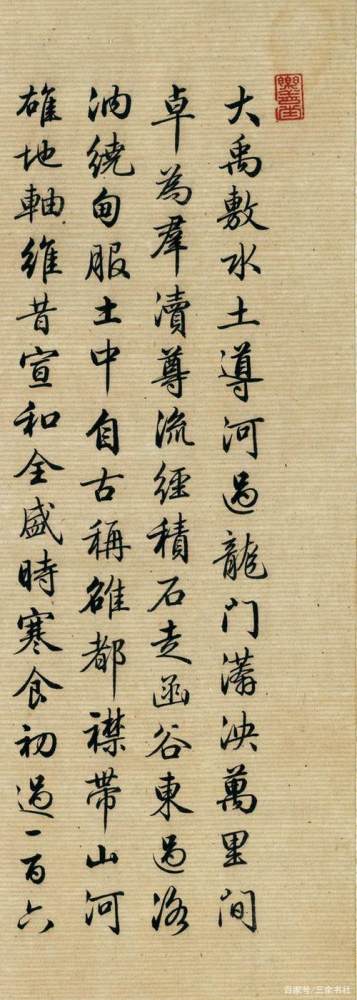 大禹敷水土導河過龍門漭泱萬里間
卓為群瀆尊流經積石走函谷東過洛
汭繞甸服土中自古稱雄都襟帶山河
雄地軸維昔宣和全盛時寒食初過一百六
百家号/三余书社